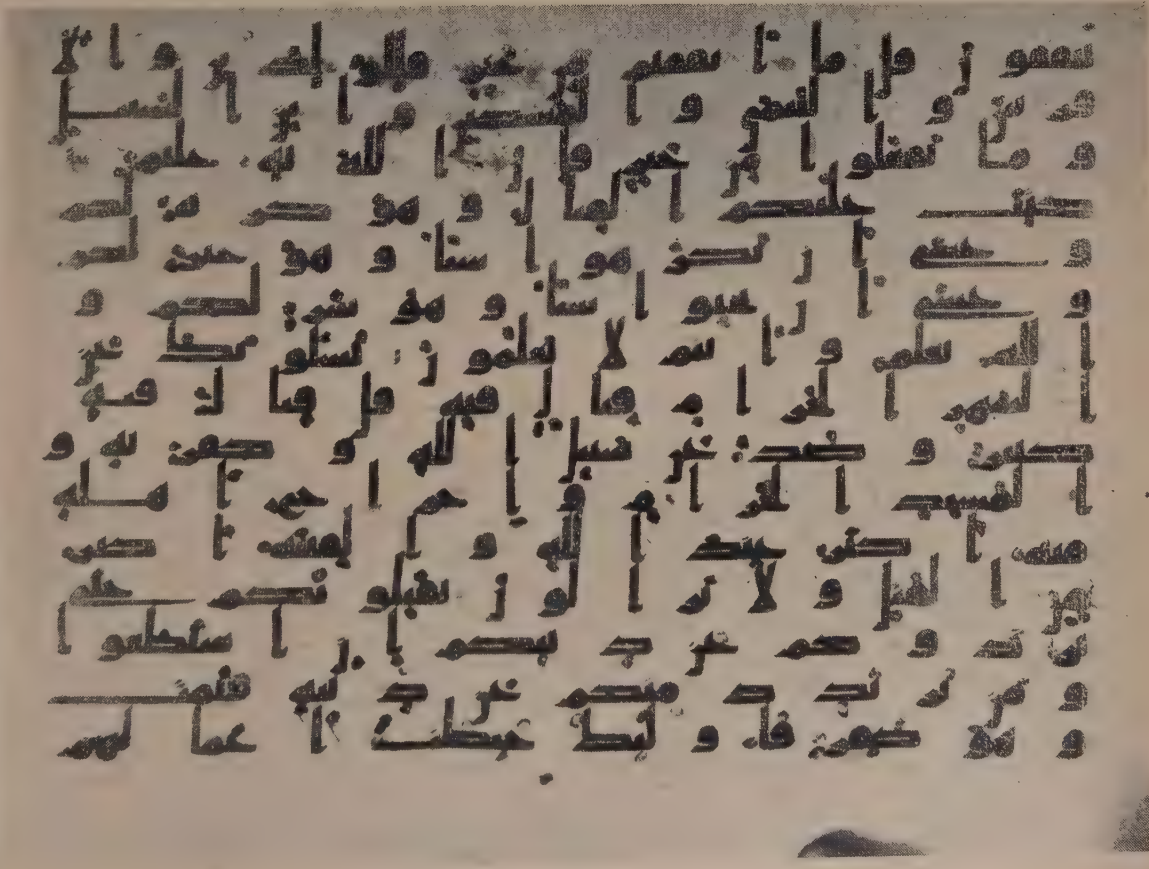 ينفقون قل ما انفقتم من خير فللولدين والا
قربين واليتمى والمسكين وابن السبيل
وما تفعلوا من خير فان الله به عليم
كتب عليكم القتال وهو كره لكم
وعسى ان تكرهوا شيا وهو خير لكم
وعسى ان تحبوا شيا وهو شر لكم و
الله يعلم وانتم لا تعلمون يسلونك عن
الشهر الحرام قتال فيه قل قتال فيه
كبير وصد عن سبيل الله وكفر به و
المسجد الحرام واخراج اهله
منه اكبر عند الله والفتنة اكبر
من القتل ولا يزالون يقتلونكم حتى
يردوكم عن دينكم ان استطعوا
ومن يرتدد منكم عن دينه فيمت
وهو كفر فاوليك حبطت اعمالهم